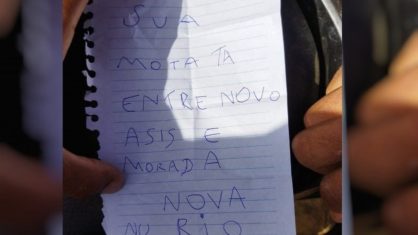 SUA
MOTA TA
ENTRE NOVO
ASIS E
MORADA
NOVA
NU RIO